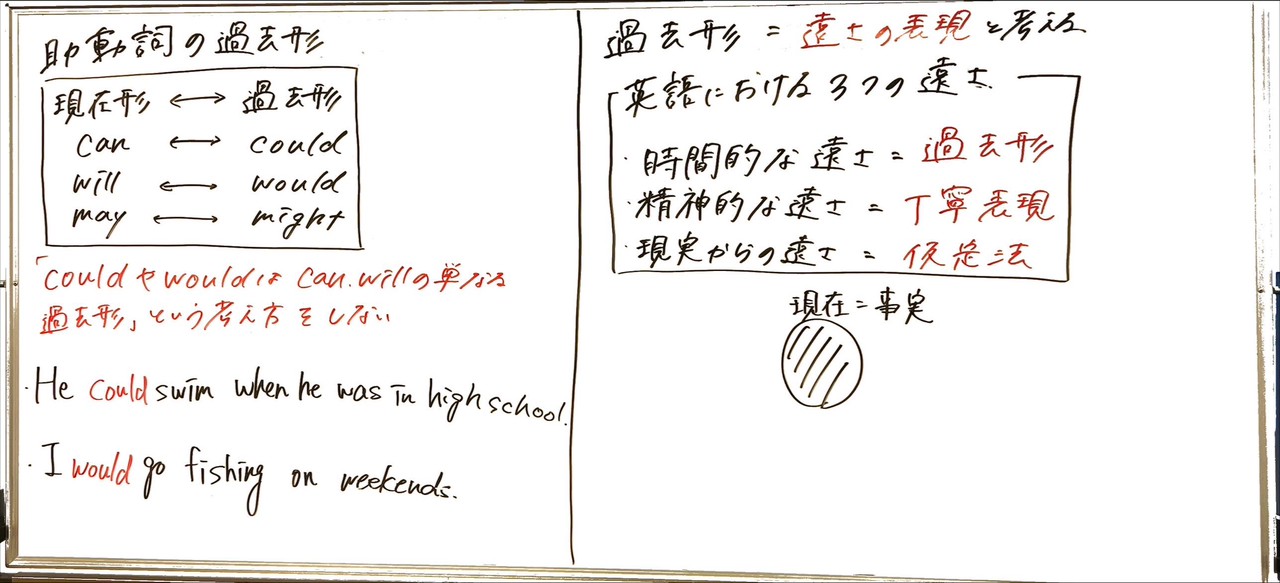 助動詞の過去形
現在形 ↔ 過去形
can ↔ could
will ↔ would
may ↔ might
「couldやwouldはcan.willの単なる
過去形」という考え方をしない
・He could swim when he was in high school.
・I would go fishing on weekends.
過去形 = 遠さの表現と考える
英語における3つの遠さ
・時間的な遠さ = 過去形
・精神的な遠さ = 丁寧表現
・現実からの遠さ = 仮定法
現在=事実